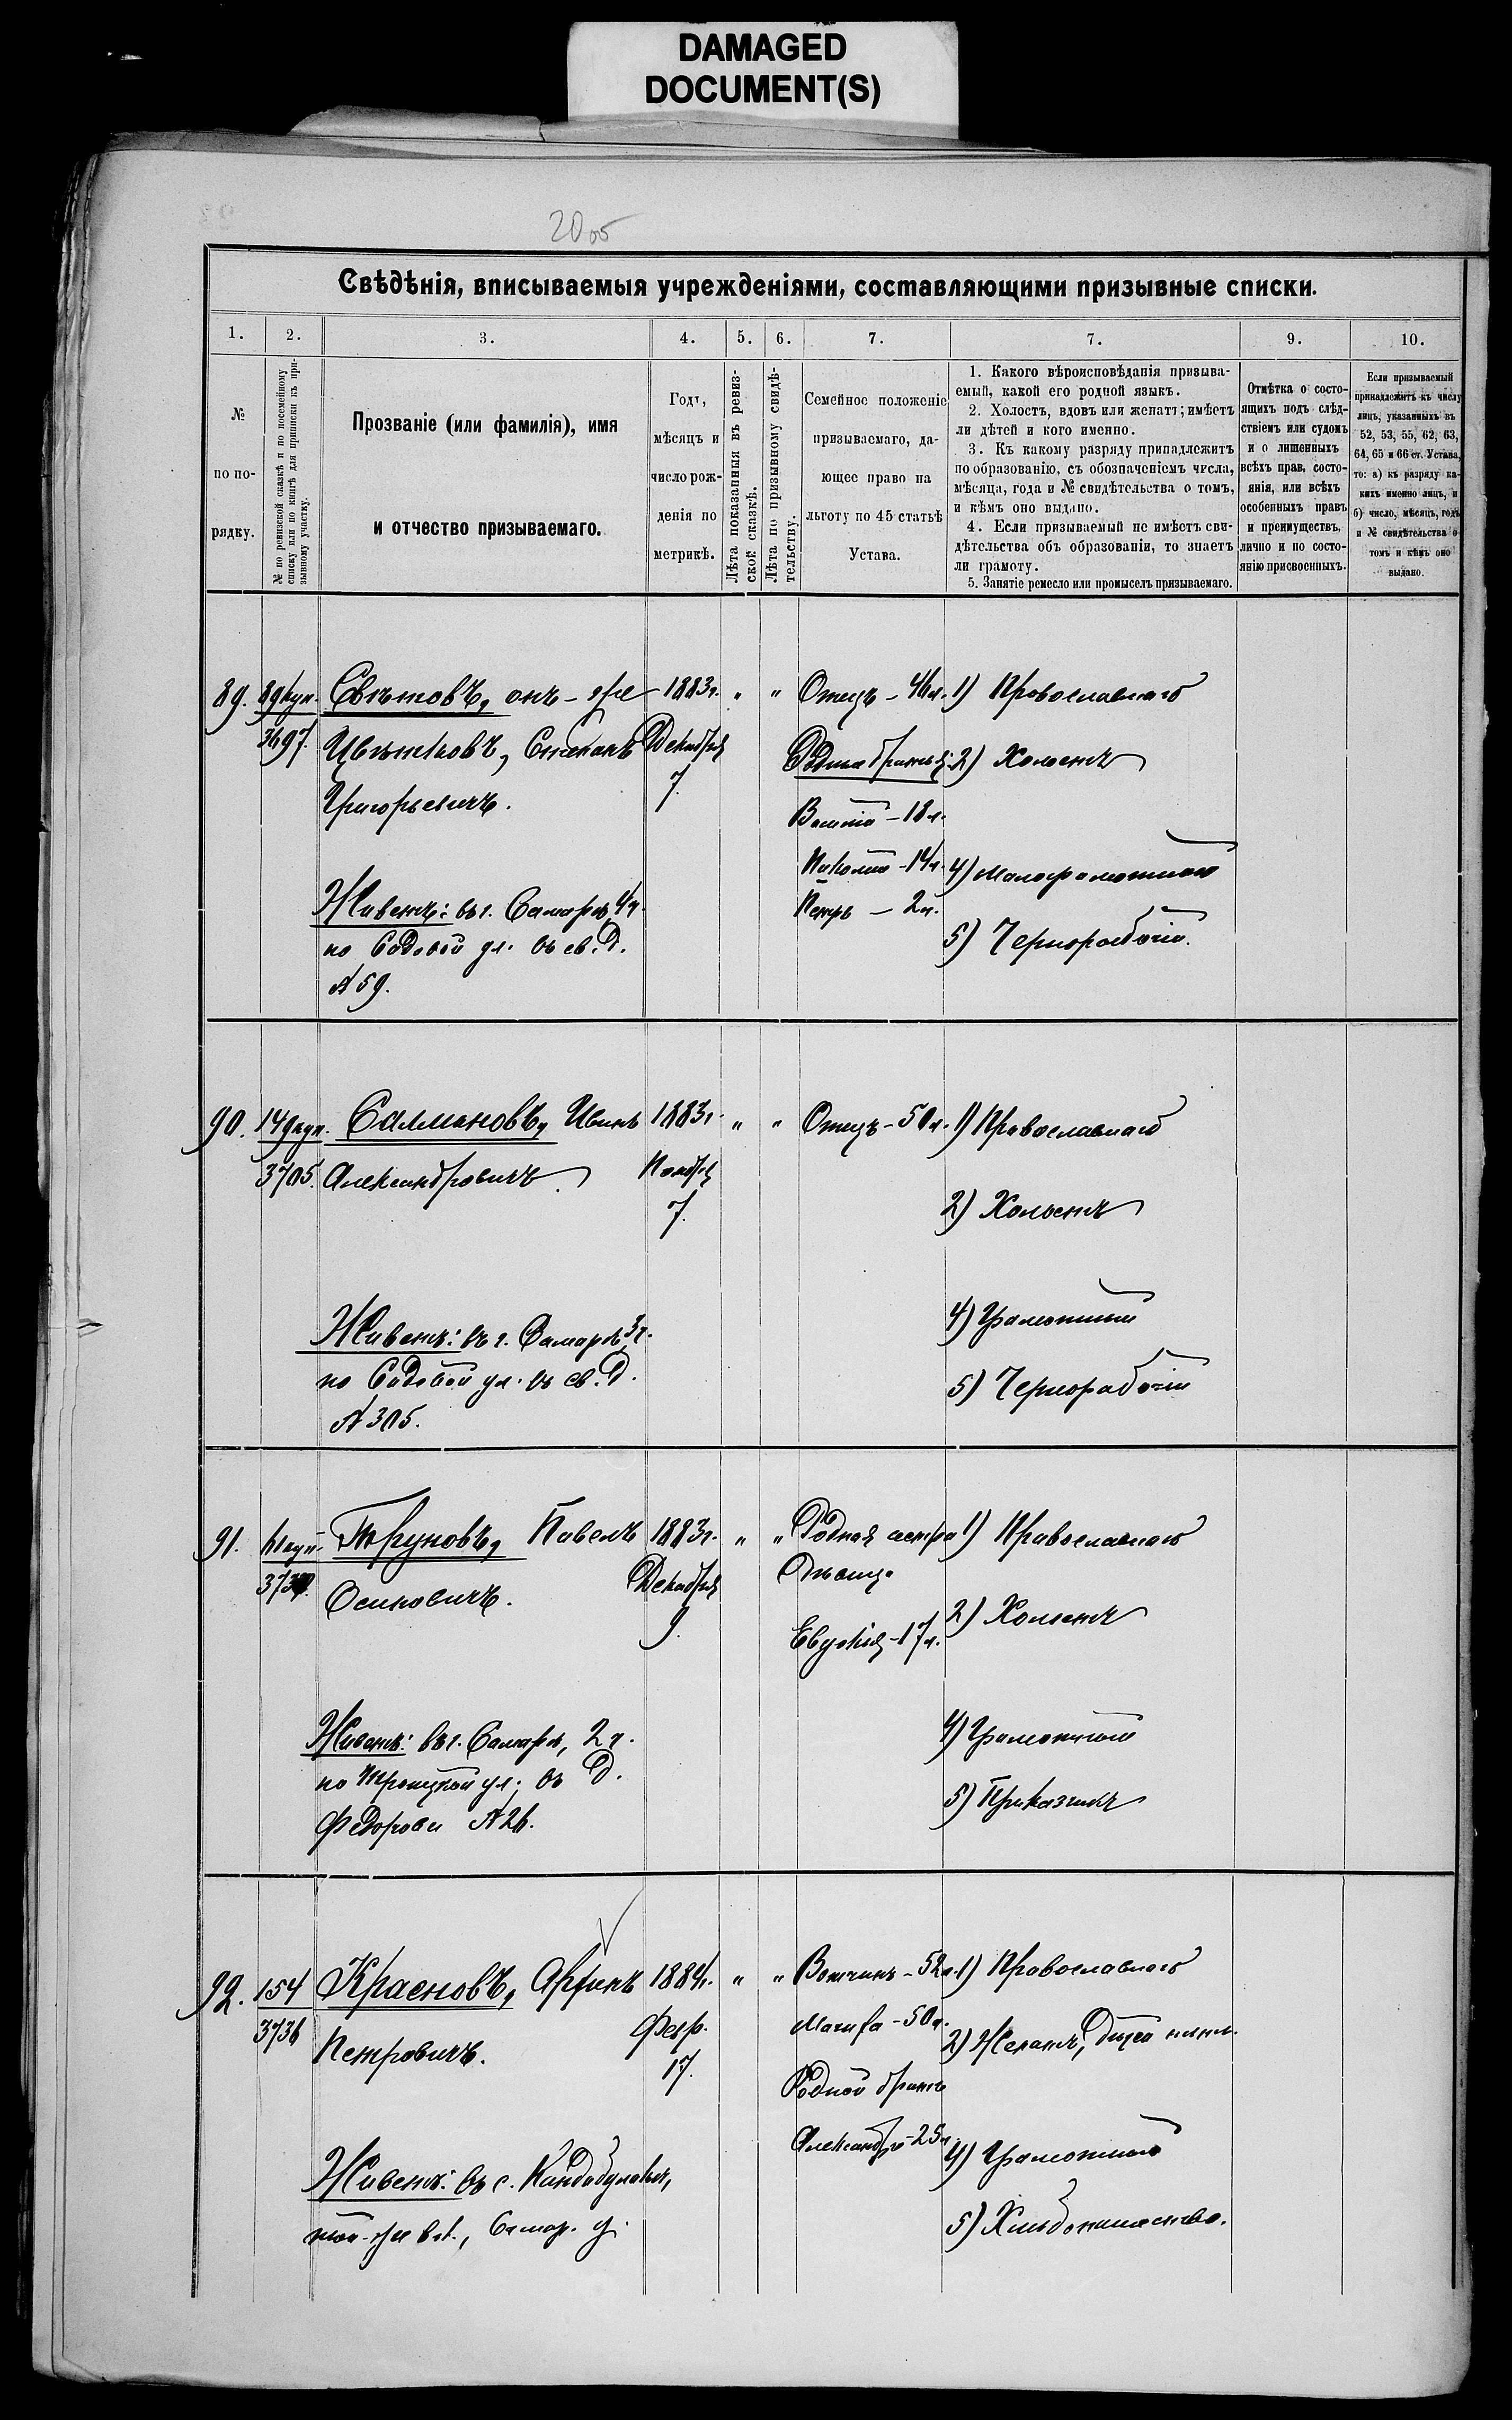 DAMAGED
DOCUMENT(S)
Свѣдѣнія, вписываемыя учрежденіями, составляющими призывные списки.
1. 2. 3. 4. 5. 6. 7. 7. 9. 10.
№
по по-
рядку.
№ по ревизской сказкѣ и по посемейному
списку или по книгѣ для приписки къ при-
зывному участку.
Прозваніе (или фамилія), имя
и отчество призываемаго.
Годъ,
мѣсяцъ и
число рож-
денія по
метрикѣ.
Лѣта показанныя въ ревиз-
ской сказкѣ.
Лѣта по призывному свидѣ-
тельству.
Семейное положеніе
призываемаго, да-
ющее право на
льготу по 45 статьѣ
Устава.
1. Какого вѣроисповѣданія призыва-
емый, какой его родной языкъ.
2. Холостъ, вдовъ или женатъ; имѣетъ
ли дѣтей и кого именно.
3. Къ какому разряду принадлежитъ
по образованію, съ обозначеніемъ числа,
мѣсяца, года и № свидѣтельства о томъ,
и кѣмъ оно выдано.
4. Если призываемый не имѣетъ сви-
дѣтельства объ образованіи, то знаетъ
ли грамоту.
5. Занятіе ремесло или промыселъ призываемаго.
Отмѣтка о состо-
ящихъ подъ слѣд-
ствіемъ или судомъ
и о лишенныхъ
всѣхъ прав, состо-
янія, или всѣхъ
особенныхъ правъ
и преимуществъ,
лично и по состо-
янію присвоенныхъ.
Если призываемый
принадлежитъ къ числу
лицъ, указанныхъ въ
52, 53, 55, 62, 63,
64, 65 и 66 ст. Устава,
то: а) къ разряду ка-
кихъ именно лицъ, и
б) число, мѣсяцъ, годъ
и № свидѣтельства о
томъ и кѣмъ оно
выдано.
89. 89 куп.
3697.
Свѣтовъ, онъ-же
Цвѣтковъ, Степанъ
Григорьевичъ.
Живетъ: въ г. Самарѣ, 4 ч.
по Садовой ул. въ св. д.
№ 59.
1883 г.
Декабря
7.
" "
Отецъ - 46 л.
Родные братья:
Василій - 18 л.
Николай - 14 л.
Петръ - 2 л.
1) Православнаго
2) Холостъ
4) Малограмотный
5) Чернорабочій.
90. 149 куп.
3705.
Салмановъ, Иванъ
Александровичъ.
Живетъ: въ г. Самарѣ, 3 ч.
по Садовой ул. въ св. д.
№ 305.
1883 г.
Ноября
7.
" "
Отецъ - 50 л.
1) Православнаго
2) Холостъ
4) Грамотный
5) Чернорабочій
91.
Труновъ, Павелъ
Осиповичъ.
Живетъ: въ г. Самарѣ, 2 ч.
по Троицкой ул. въ д.
Федорова № 26.
1883 г.
Декабря
9.
" "
Родная сестра
Дѣвица
Евдокія - 17 л.
1) Православнаго
2) Холостъ
4) Грамотный
5) Приказчикъ
92. 154
3736
Красновъ,
Петровичъ.
Живетъ: въ с. Кандабулакѣ,
той-же вол., Самар. у.
1884 г.
Февр.
17.
" "
Вотчимъ - 52 л.
Мачиха - 50 л.
Родной братъ
Александръ - 25 л.
1) Православнаго
2) Женатъ,
4) Грамотный
5) Хлѣбопашество.